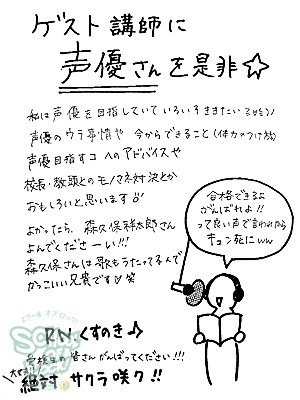 ゲスト講師に
声優さんを是非☆
私は声優を目指していていろいろききたいです(笑)
声優のウラ事情や 今からできること(体力のつけ方)
声優目指すコへのアドバイスや
校長・教頭とのモノマネ対決とか
おもしろいと思います♪
よかったら、森久保祥太郎さん
よんでくださーい!!!
森久保さんは歌もうたってるんで
かっこいい兄貴です♡笑
RN くすのき♪
受検生の皆さんがんばってください!!!
大丈夫!!
絶対サクラ咲ク!!
合格できるよ
がんばれよ!!
って良い声で言われたら
キュン死にww